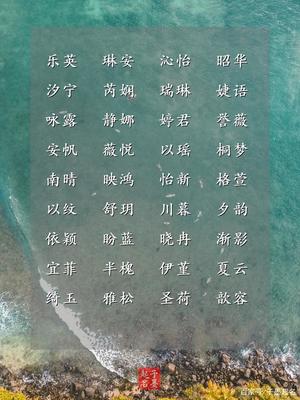 乐英 琳安 沁怡 昭华
汐宁 芮娴 瑞琳 婕语
咏露 静娜 婷君 誉薇
安帆 薇悦 以瑶 桐梦
南晴 映鸿 怡新 格萱
以纹 舒玥 川暮 夕韵
依颖 盼蓝 晓冉 渐影
宜菲 半槐 伊堇 夏云
绮玉 雅松 圣荷 歆容